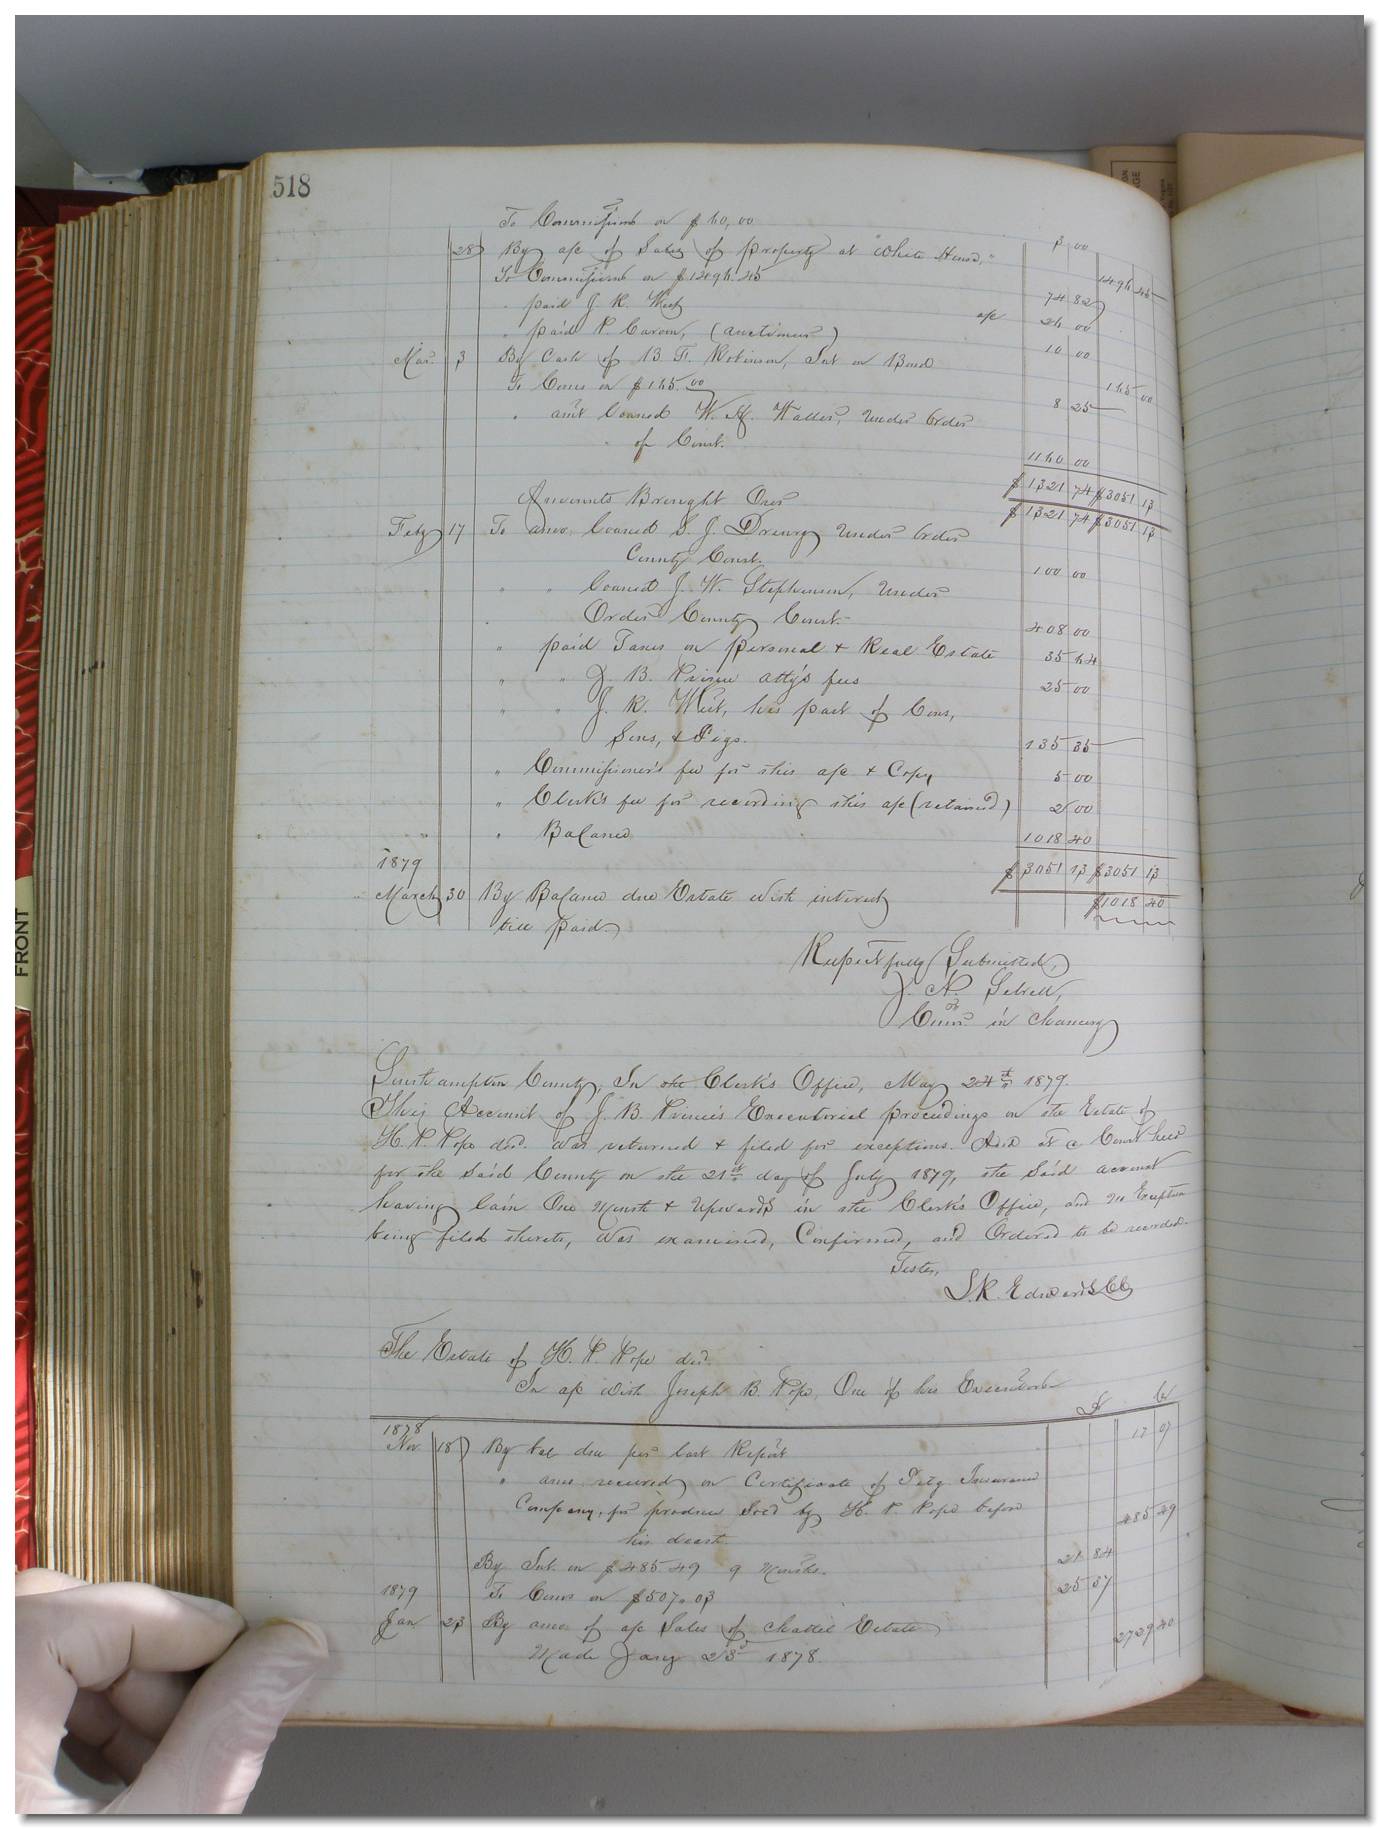 518
To Commissions on $60,00 3 00
28 By a/c of Sales of property at "White House," 1496 45
To Commissions on $1496.45 74 82
" paid J. R. West a/c 26 00
" paid P. (auctioneer) 10 00
Mar. 3 By Cash of B. F. Robinson, Int on Bond 165 00
To Coms on $165.00 8 25
" am't loaned W. H. Waller, under Order
of Court. 1160 00
$1321 74 $3051 13
Amounts Brought Over $1321 74 $3051 13
Feby 17 To amo. loaned S. J. Drewry under Order
County Court. 100 00
" " loaned J. W. Stephenson, under
Order County Court. 408 00
" paid Taxes on personal & Real Estate 35 64
" " J. B. Prince atty's fees 25 00
" " J. R. West, his part of Corn,
Sows, & Pigs. 135 35
" Commissioner's fee for this a/c & Copy 5 00
" Clerk's fee for recording this a/c (retained) 2 00
" Balance 1018 40
1879 $3051 13 $3051 13
March 30 By Balance due Estate with interest $1018 40
till paid.
Respectfully Submitted,
J. N. Sebrell,
Comr. in Chancery
Southampton County, In the Clerk's Office, May 24th 1879.
This Account of J. B. Prince's Executorial proceedings on the Estate of
H. P. Pope decd. was returned & filed for exceptions. And at a Court held
for the said County on the 21st day of July 1879, the said account
having lain One Month & Upwards in the Clerk's Office, and no Exception
being filed thereto, was examined, Confirmed, and Ordered to be recorded.
Teste,
L. R. Edwards CC
The Estate of H. P. Pope decd.
In a/c with Joseph B. Pope, One of his Executors
Dr Cr
1878
Nov 18 By bal due per last Report 17 07
" amo received on Certificate of Petg Insurance
Company, for produce sold by H. P. Pope before
his death. 485 49
By Int. on $485 49 9 Months. 21 84
1879 To Coms on $507.03 25 37
Jan 23 By amo. of a/c Sales of Chattel Estate
Made Jany 23d 1878 2729 40
FRONT